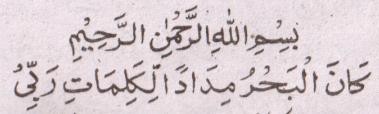 بِسْمِ اللهِ الرَّحْمٰنِ الرَّحِيْمِ
كَانَ الْبَحْرُ مِدَادًا لِّكَلِمَاتِ رَبِّىْ